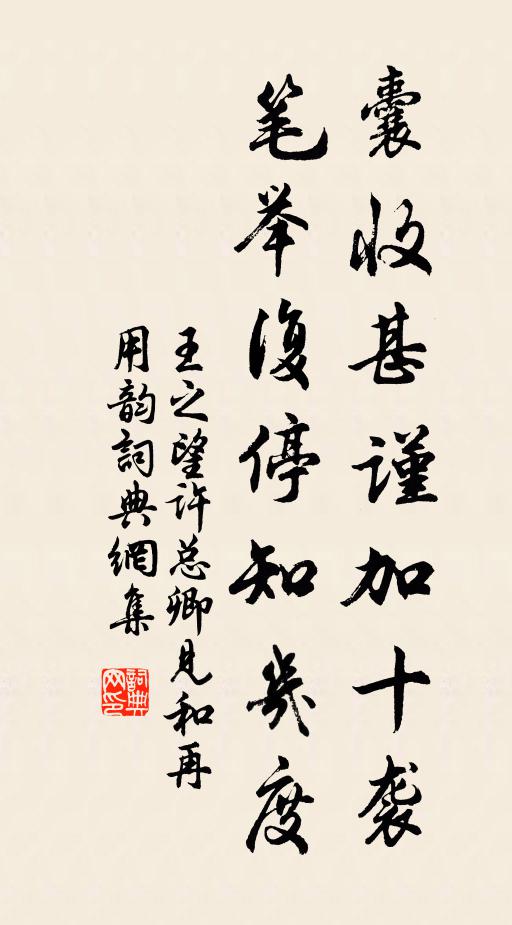 囊收甚谨加十袭
笔举復停知幾度
王之望许总卿见和再
用韵詞典網集
詞典
网印